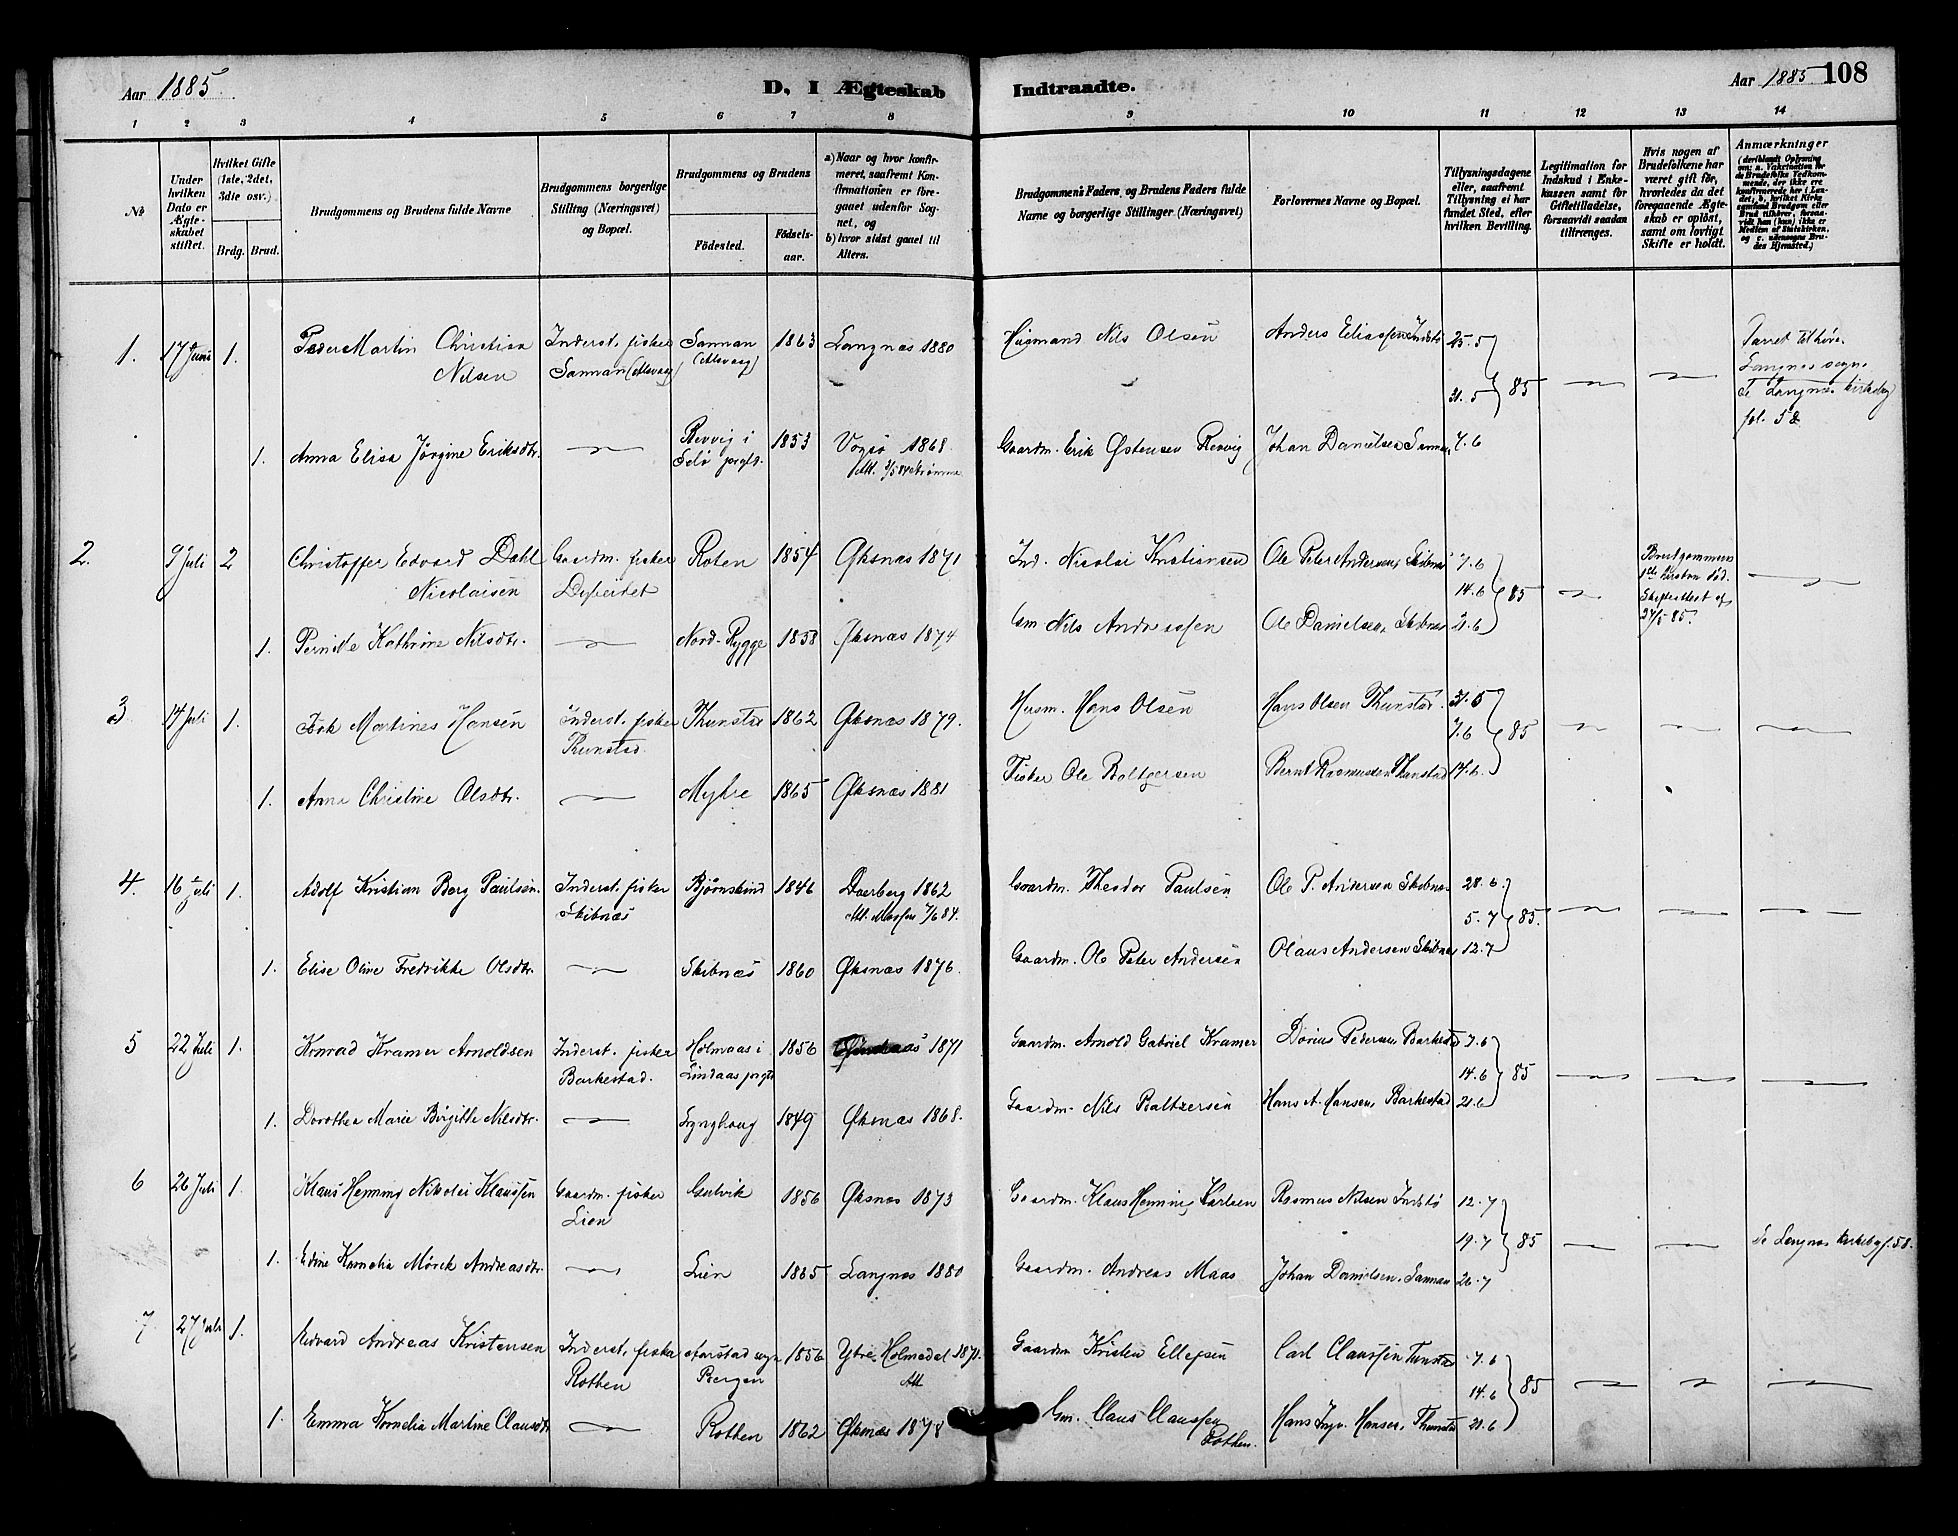 Aar 1885.
D. I Ægteskab Indtraadte.
Aar 1885 108
1 2 3 4 5 6 7 8 9 10 11 12 13 14
№
Under hvilken Dato er Ægteskabet stiftet.
Hvilket Gifte (1ste, 2det, 3die osv.)
Brdg. Brud.
Brudgommens og Brudens fulde Navne
Brudgommens borgerlige Stilling (Næringsvei) og Bopæl.
Brudgommens og Brudens
Födested. Födsels-aar.
a) Naar og hvor konfirmeret, saafremt Konfirmationen er foregaaet udenfor Sognet, og
b) hvor sidst gaaet til Alters.
Brudgommens Faders, og Brudens Faders fulde Navne og borgerlige Stillinger (Næringsvei)
Forlovernes Navne og Bopæl.
Tillysningsdagene eller, saafremt Tillysning ei har fundet Sted, efter hvilken Bevilling.
Legitimation for Indskud i Enkekassen samt for Giftetilladelse, forsaavidt saadan tiltrænges.
Hvis nogen af Brudefolkene har været gift för, hvorledes da det foregaaende Ægteskab er oplöst, samt om lovligt Skifte er holdt.
Anmærkninger
1. 17 Juni 1. Peder Martin Christian Nilsen Inderst. fisker Sannan (Alsvaag) Sannan (Alsvaag) 1863 Langnæs 1880 Husmand Nils Olsen Anders Eliassen 25.5 31.5 } 85
Langnes sogn. Se Langnes kirkebog fol. 58
1. Anna Elisa Jørgine Eriksdtr. Revvig i Selø prgld. 1853 Vogsø 1868 Gaardm. Erik Østensen Revvig Johan Danielsen Sannan 7.6
2. 9 Juli 2 Christoffer Edvard Dahl Nicolaisen Gaardm. fisker Roten 1854 Øksnæs 1871 Ind. Nicolai Kristiansen Ole Peter Andersen, Skibnæs 7.6 14.6 21.6 } 85 Brudgommens 1ste kone død. Skifteattest af 27/5 85.
1. Pernille Kathrine Nilsdtr. Nord-Rygge 1858 Øksnæs 1874 Gm. Nils Andreassen Ole Danielsen, Skibnæs
3 14 Juli 1. Isak Martines Hansen Inderst. fisker Thunstad. Thunstad 1862 Øksnæs 1879. Husm. Hans Olsen Hans Olsen Thunstad. 31.5 7.6 14.6 } 85
1. Anna Christine Olsdtr. Myhre 1865 Øksnæs 1881 Fisker Ole Baltzersen Bernt Rasmussen Thunstad
4. 16 Juli 1. Adolf Kristian Berg Paulsen. Inderst. fisker Skibnæs Bjørnskind 1846 Dverberg 1862 Gaardm. Theodor Paulsen Ole P. Andersen Skibnæs 28.6 5.7 12.7 } 85.
1. Elise Oline Fredrikke Olsdtr. Skibnæs 1860 Øksnæs 1876. Gaardm. Ole Peter Andersen Olaus Andersen Skibnæs
5 22 Juli 1. Konrad Kramer Arnoldsen Inderst. fisker Barkestad. Holmaas i Lindaas prgld 1856 1871 Gaardm. Arnold Gabriel Kramer Dorius Pedersen Barkestad 7.6 14.6 21.6 } 85
1. Dorothea Marie Birgitte Nilsdtr. Lynghaug 1849 Øksnæs 1868. Gaardm. Nils Baltzersen Hans A. Hansen, Barkestad
6 26 Juli 1. Klaus Henning Nikolei Klaussen Gaardm. fisker Lien Gulvik 1856 Øksnæs 1873 Gaardm. Klaus Henning Karlsen Rasmus Nilsen Indstø 12.7 19.7 26.7 } 85 Se Langnæs kirkebog f. 58.
1. Edine Kornelia Mørch Andreasdtr. Lien 1865 Langnæs 1880 Gaardm. Andreas Maas Johan Danielsen, Sannan
7 27 Juli 1. Edvard Andreas Kristensen Inderst. fisker Rothen Aarstad sogn Bergen 1856 Ytre Holmedal 1871. Att Gaardm Kristen Ellefsen Carl Claussen Tunstad 7.6 14.6 21.6 } 85
1. Emma Kornelia Martine Clausdtr Rothen 1862 Øksnæs 1878 Gm. Claus Claussen Rothen. Hans Ingv. Hansen, Thunstad